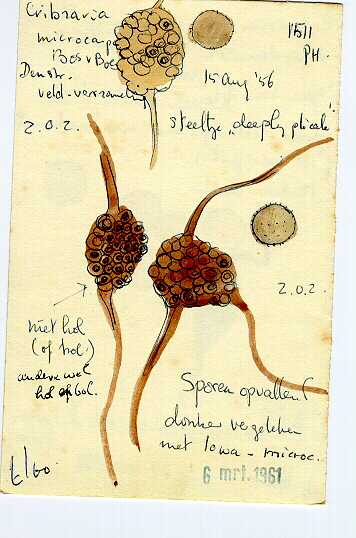 Cribraria
microcarpa
Bos v Bos
Denstr.
veld-verzameling
1511
PH.
15 aug '56
steeltje „deeply plicate"
Z.O.Z.
Z.O.Z.
niet hol
(of bol.)
andere wel
hol of bol.
Sporen opvallend
donker vergeleken
met Iowa - microc.
6 mrt. 1961